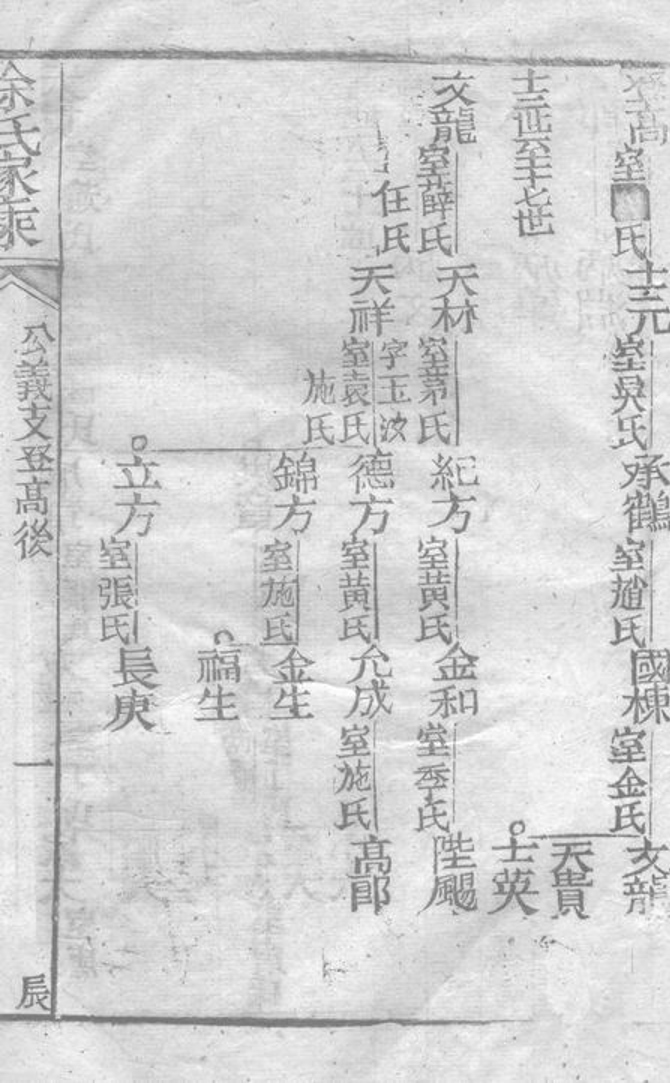 登高 室 氏 士元 室吳氏 承鶴 室趙氏 國棟 室金氏 文龍
天貴
士英
十三世至十七世
文龍 室薛氏 天林 室茅氏 紀方 室黄氏 金和 室季氏 陛颺
任氏 天祥 字玉波 室袁氏 施氏 德方 室黄氏 允成 室施氏 高郎
錦方 室施氏 金生
福生
立方 室張氏 長庚
徐氏家乘 公義支登高後 一 辰